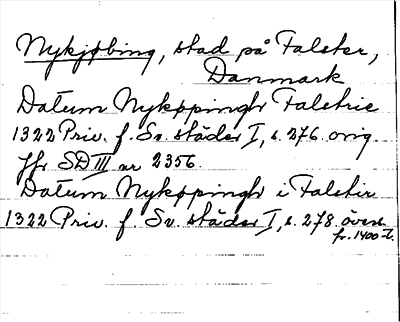 Nykjøbing, stad på Falster,
Danmark
Datum Nykøpingh Falstrie
1322 Priv. f. Sv. städer I, s. 276. orig.
Jfr SD III nr 2356.
Datum Nykøpingh i Falstir
1322 Priv. f. Sv. städer I, s. 278. övers.
fr. 1400-t.